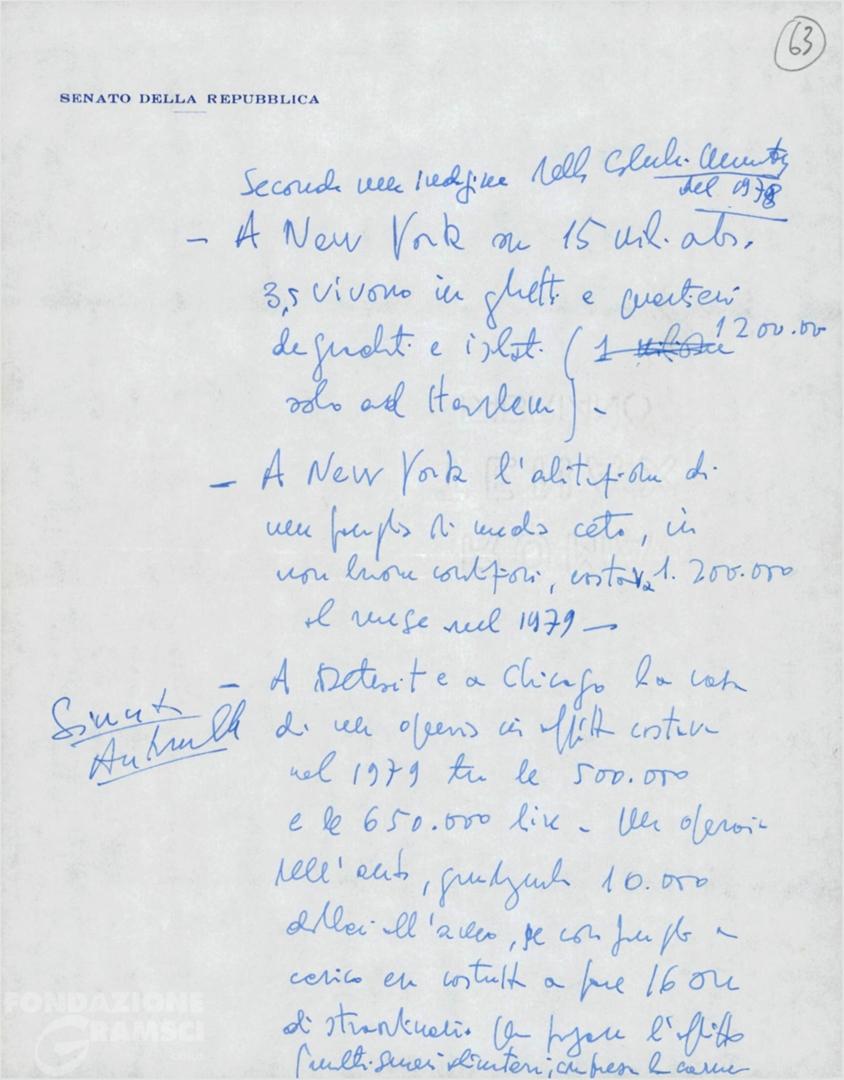 63
SENATO DELLA REPUBBLICA
Secondo una indagine della
del 1978
- A New York su 15 mil. abs.
3,5 vivono in ghetti e quartieri
degradati e isolati (1 milione 1200.00
solo ad Harlem) -
- A New York l'abitazione di
una famiglia di medio ceto, in
non buone condizioni, costava 1. 200.000
al mese nel 1979 -
- A Detroit e a Chicago la casa
Sinatti
di un operaio in affitto costava
nel 1979 tra le 500.000
e le 650.000 lire - Un operaio
dell'auto, guadagnando 10.000
dollari all'anno, se con famiglia a
carico era costretto a fare 16 ore
di straordinario per pagare l'affitto
FONDAZIONE
GRAMSCI
(molti generi alimentari, compresa la carne